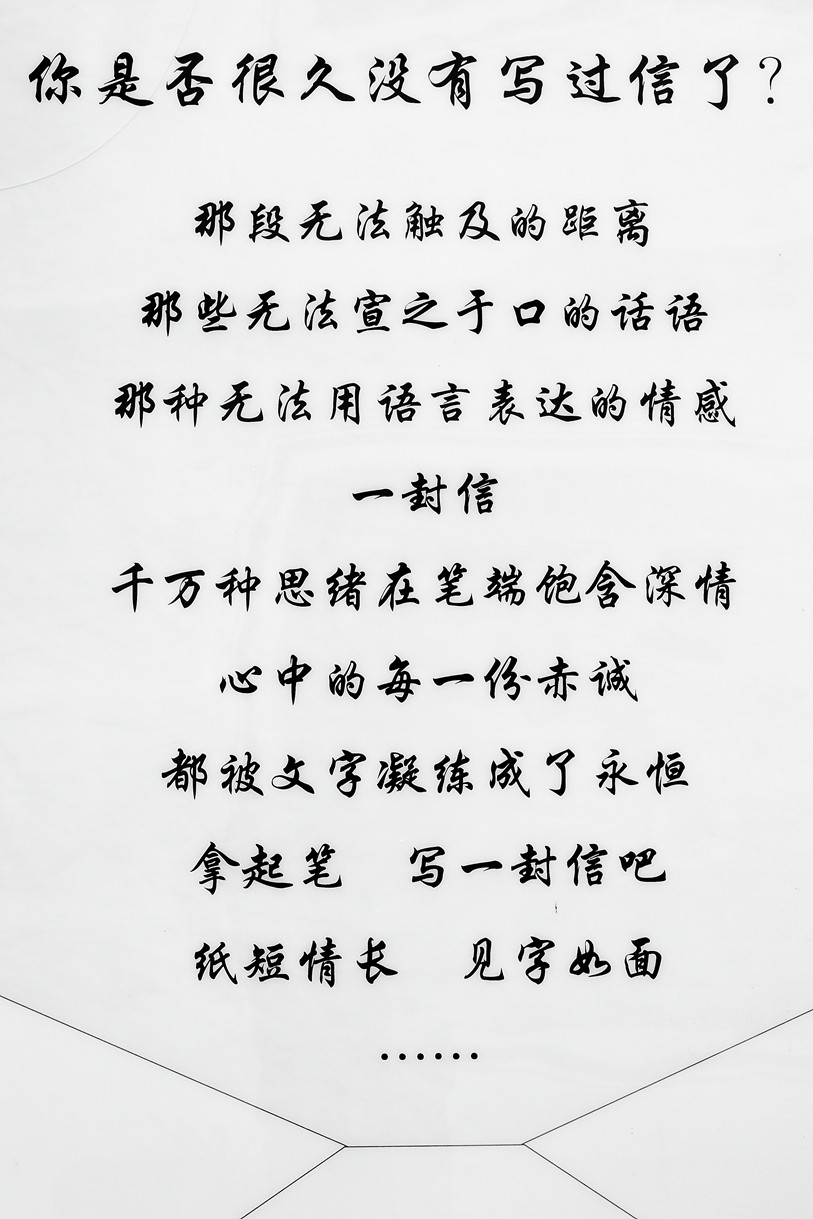 你是否很久没有写过信了？
那段无法触及的距离
那些无法宣之于口的话语
那种无法用语言表达的情感
一封信
千万种思绪在笔端饱含深情
心中的每一份赤诚
都被文字凝练成了永恒
拿起笔　写一封信吧
纸短情长　见字如面
……